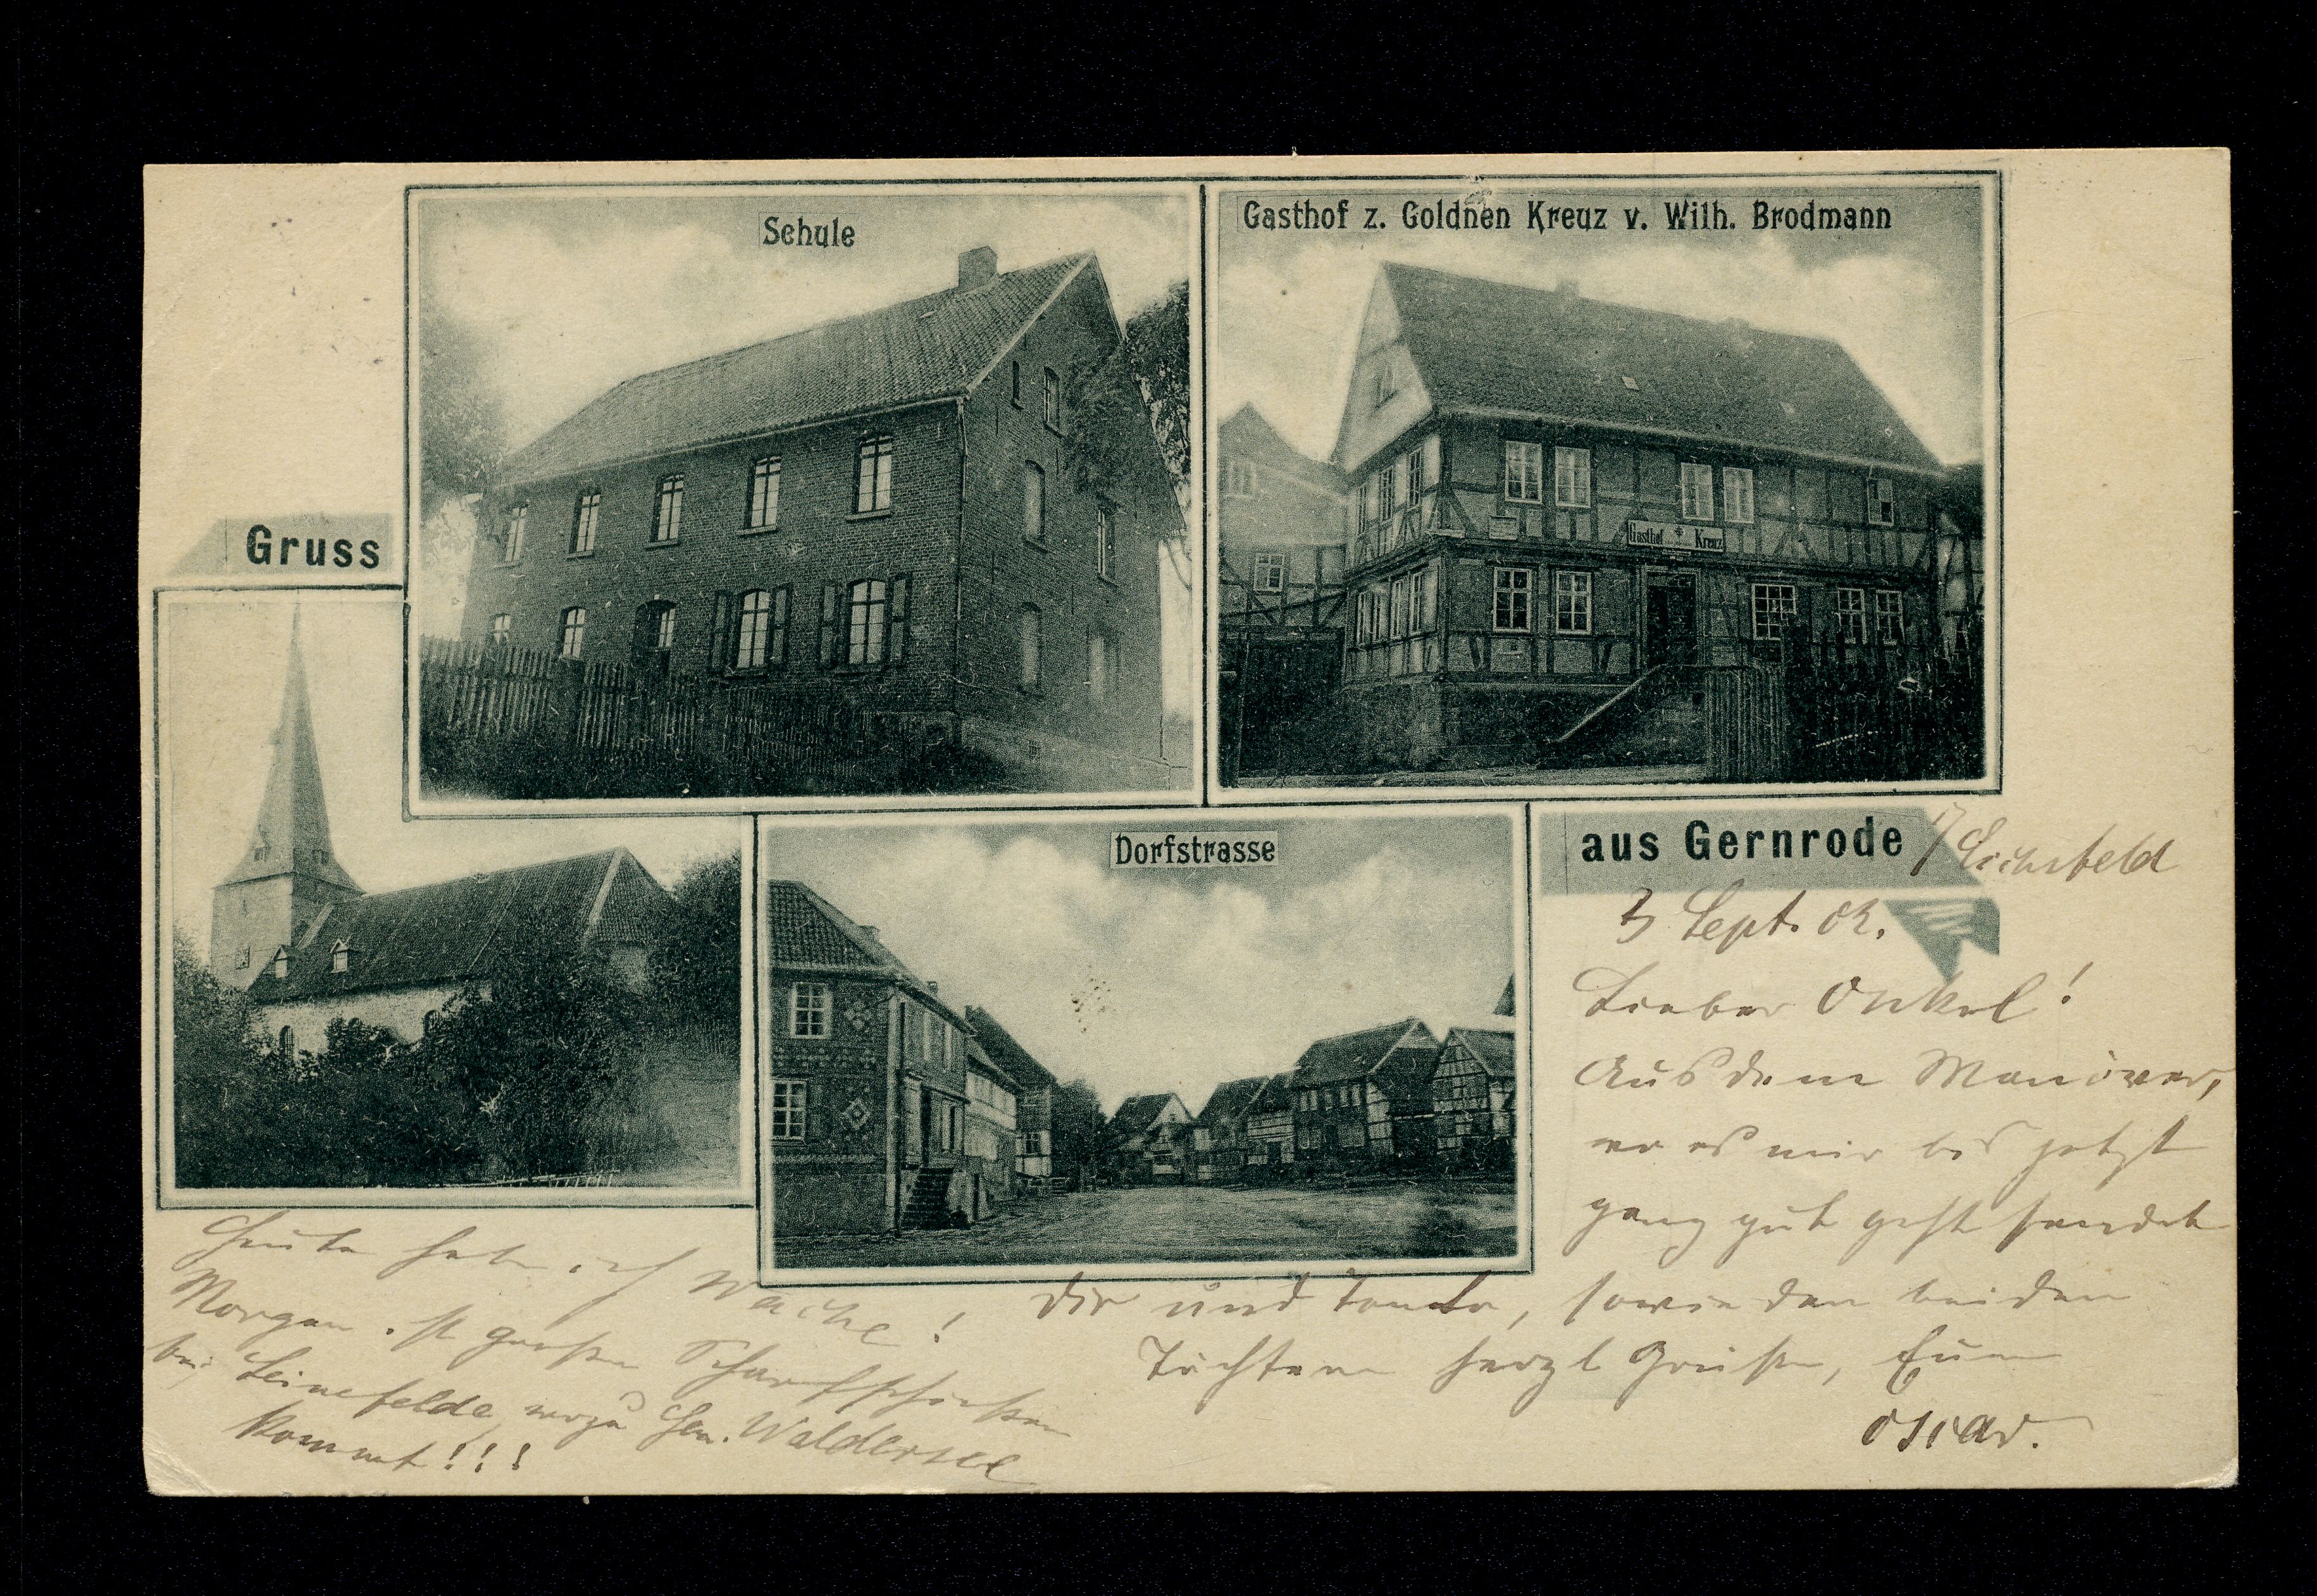 Schule
Gasthof z. Goldnen Kreuz v. Wilh. Brodmann
Gasthof Kreuz
Gruss
Dorfstrasse
aus Gernrode / Eichsfeld
3 Sept. 02.
Lieber Onkel!
Aus dem Manöver,
wo es mir bis jetzt
ganz gut geht sendet
Dir und Tante, sowie den beiden
Töchtern herzl Grüße, Euer
Oscar.
Heute habe ich Wache!
Morgen ist großes Scharfschießen
bei Leinefelde, wozu Gen. Waldersee
kommt!!!